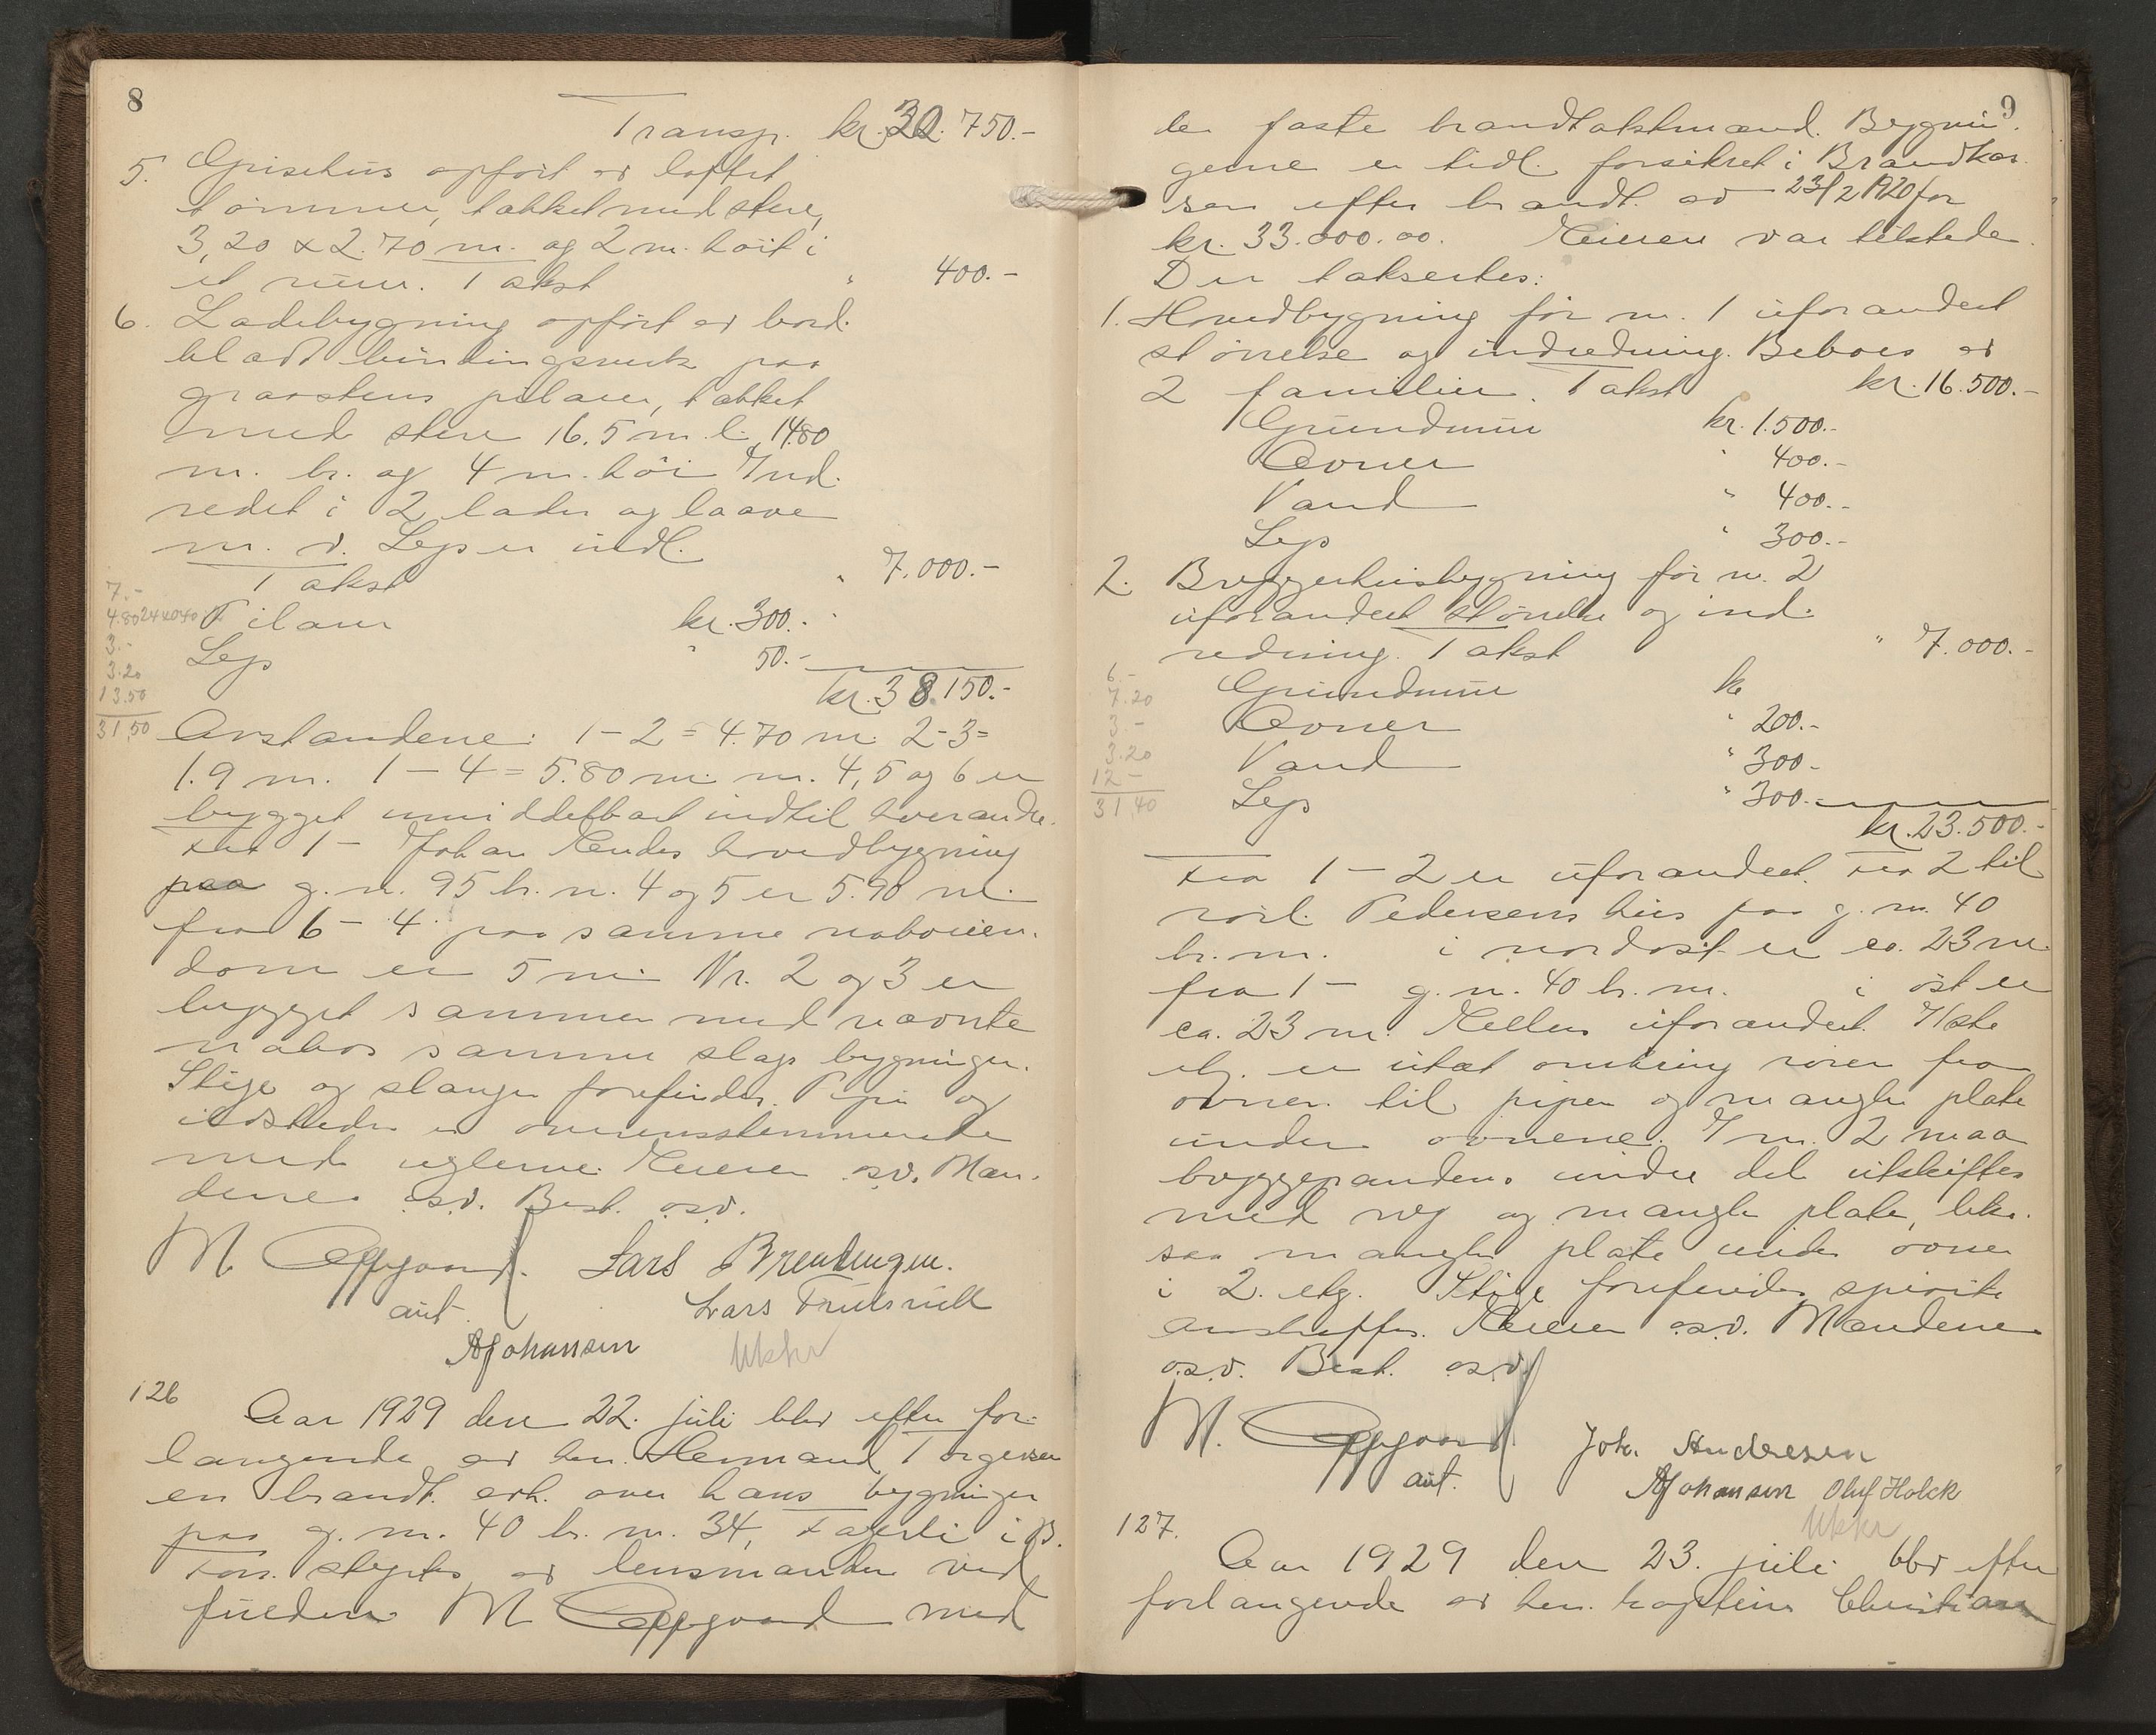 8
Transp. kr. 30.750.-
5. Grisehus opført av loftet
tømmer, tækket med stene,
3,20 x 2.70 m. og 2 m. høit i
et rum. Takst " 400.-
6. Ladebygning opført av bord-
klædt bindingsverk paa
graastens pilarer, tækket
med stene 16.5 m. l. 14.80
m. br. og 4 m. høi Ind-
redet i 2 lader og laave
m. v. Lys er indl.
Takst " 7.000.-
Pilarer kr. 300.-
Lys " 50.-
kr. 38.150.-
7.-
4.80
3.-
3.20
13.50
31,50
Avstandene: 1-2 = 4.70 m. 2-3=
1.9 m. 1-4 = 5.80 m. nr. 4, 5 og 6 er
bygget umiddelbart indtil hverandre.
Fra 1 - Johan hovedbygning
paa g. n. 95 br. n. 4 og 5 er 5.90 m.
fra 6 - 4 paa samme naboeien-
dom er 5 m. Nr. 2 og 3 er
bygget sammen med nævnte
nabos samme slags bygninger.
Stige og slanger forefindes. Pipe og
ildsteder er overensstemmende
med reglerne. Eieren osv. Mæn-
dene osv. Best. osv.
M Oppgaard. Lars Brendengen.
aut. Lars Trulsrud
A Johansen Ukkr
126
Aar 1929 den 22. juli blev efter for-
langende av hr. Hermand Torgersen
en brandt. avh. over hans bygninger
paa g. nr. 40 br. nr. 34, Fagerli i B.
Forr. styrtes av lensmanden ved
fuldm. M Oppgaard med
9
de faste brandtakstmænd. Bygnin-
gerne er tidl. forsikret i Brandkas-
sen efter brandt. av 23/2 1920 for
kr. 33.000.00. Eieren var tilstede.
Der taksertes:
1. Hovedbygning før nr. 1 uforandret
størrelse og indredning. Beboes av
2 familier. Takst kr. 16.500.-
Grundmur kr. 1.500.-
Ovner " 400.-
Vand " 400.-
Lys " 300.-
2. Bryggerhusbygning før nr. 2
uforandret størrelse og ind-
redning. Takst " 7.000.-
Grundmur kr
Ovner " 200.-
Vand " 300.-
Lys " 300.-
kr. 23.500.-
6.-
7.20
3.-
3.20
12-
31,40
Fra 1-2 er uforandret. Fra 2 til
Pedersens hus paa g. nr. 40
br. nr. i nordøst er ca. 23 m.
fra 1 - g. n. 40 br. nr. i øst er
ca. 23 m. Ellers uforandret. I 1ste
etg. er utæt omkring røret fra
ovnen til pipen og mangler plate
under ovnene. I nr. 2 maa
bryggepandens indre del utskiftes
med ny og mangler plate, like-
saa mangler plate under ovnen
i 2. etg. Stige forefindes, sprøite
anskaffes. Eieren osv. Mændene
o.s.v. Best. osv.
M. Oppgaard. Joh. Andresen
aut. A Johansen Oluf Holck
Ukkr
127.
Aar 1929 den 23. juli blev efter
forlangende av hr. kaptein Christian